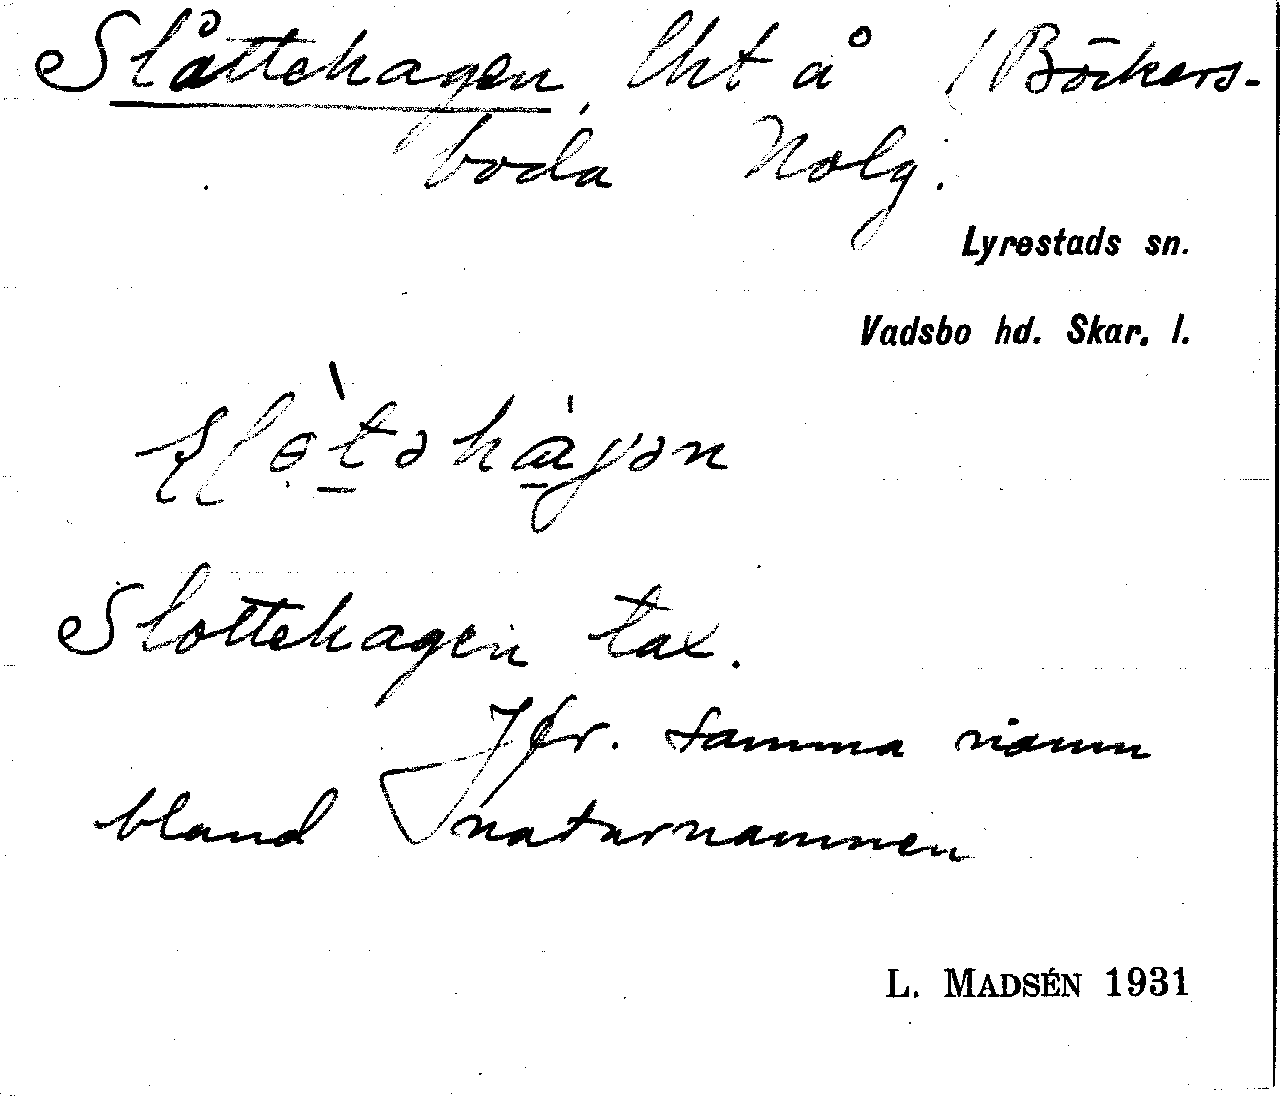 Slåttehagen, lht å 1 Böckers-
boda Nolg.
Lyrestads sn.
Vadsbo hd. Skar. l.
Slottehagen tax.
Jfr. samma namn
bland naturnamnen
L. MADSÉN 1931